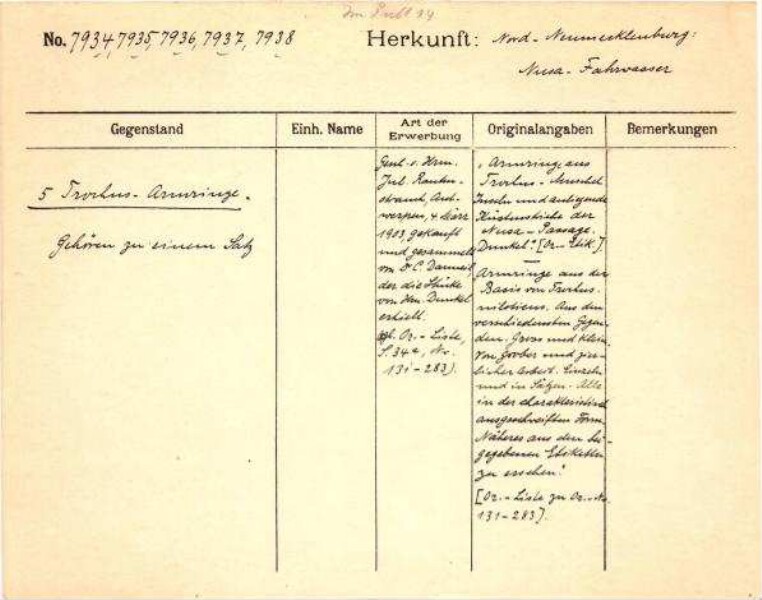 No. 7934, 7935, 7936, 7937, 7938
Herkunft: Nord-Neumecklenburg:
Nusa-Fahrwasser
Gegenstand
Einh. Name
Art der
Erwerbung
Originalangaben
Bemerkungen
5 Trochus-Armringe.
Gehören zu einem Satz
Gesch. v. Hrn.
Jul. Rauten-
strauch, Ant-
werpen, 4. März
1903, gekauft
und gesammelt
von Dr C.
der die Stücke
von Hrn. Dunkel
erhielt.
vgl. Or.-Liste,
S. 34a, No.
131-283).
"Armringe aus
Trochus-Muschel
Inseln und anliegende
Küstenstriche der
Nusa-Passage.
Dunkel". [Or-Etik.].
"Armringe aus der
Basis von Trochus
niloticus. Aus den
verschiedensten Gegen-
den. Gross und klein.
Von grober und zier-
licher Arbeit. Einzeln
und in Sätzen. Alle
in der charakteristisch
ausgeschweiften Form.
Näheres aus den bei-
gegebenen Etiketten
zu ersehen."
[Or.-Liste zu Or.-No.
131-283].